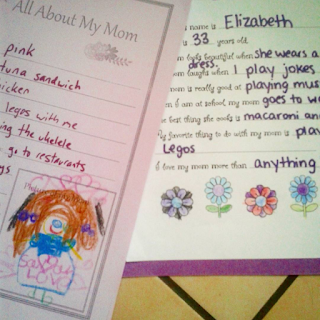 All About My Mom
pink
tuna sandwich
chicken
legos with me
the ukelele
go to restaurants
name is Elizabeth
is 33 years old.
looks beautiful when she wears a dress.
laughed when I play jokes
mom is really good at playing
When I am at school, my mom goes to
best thing she cooks is macaroni an
My favorite thing to do with my mom is play
Legos
I love my mom more than anything